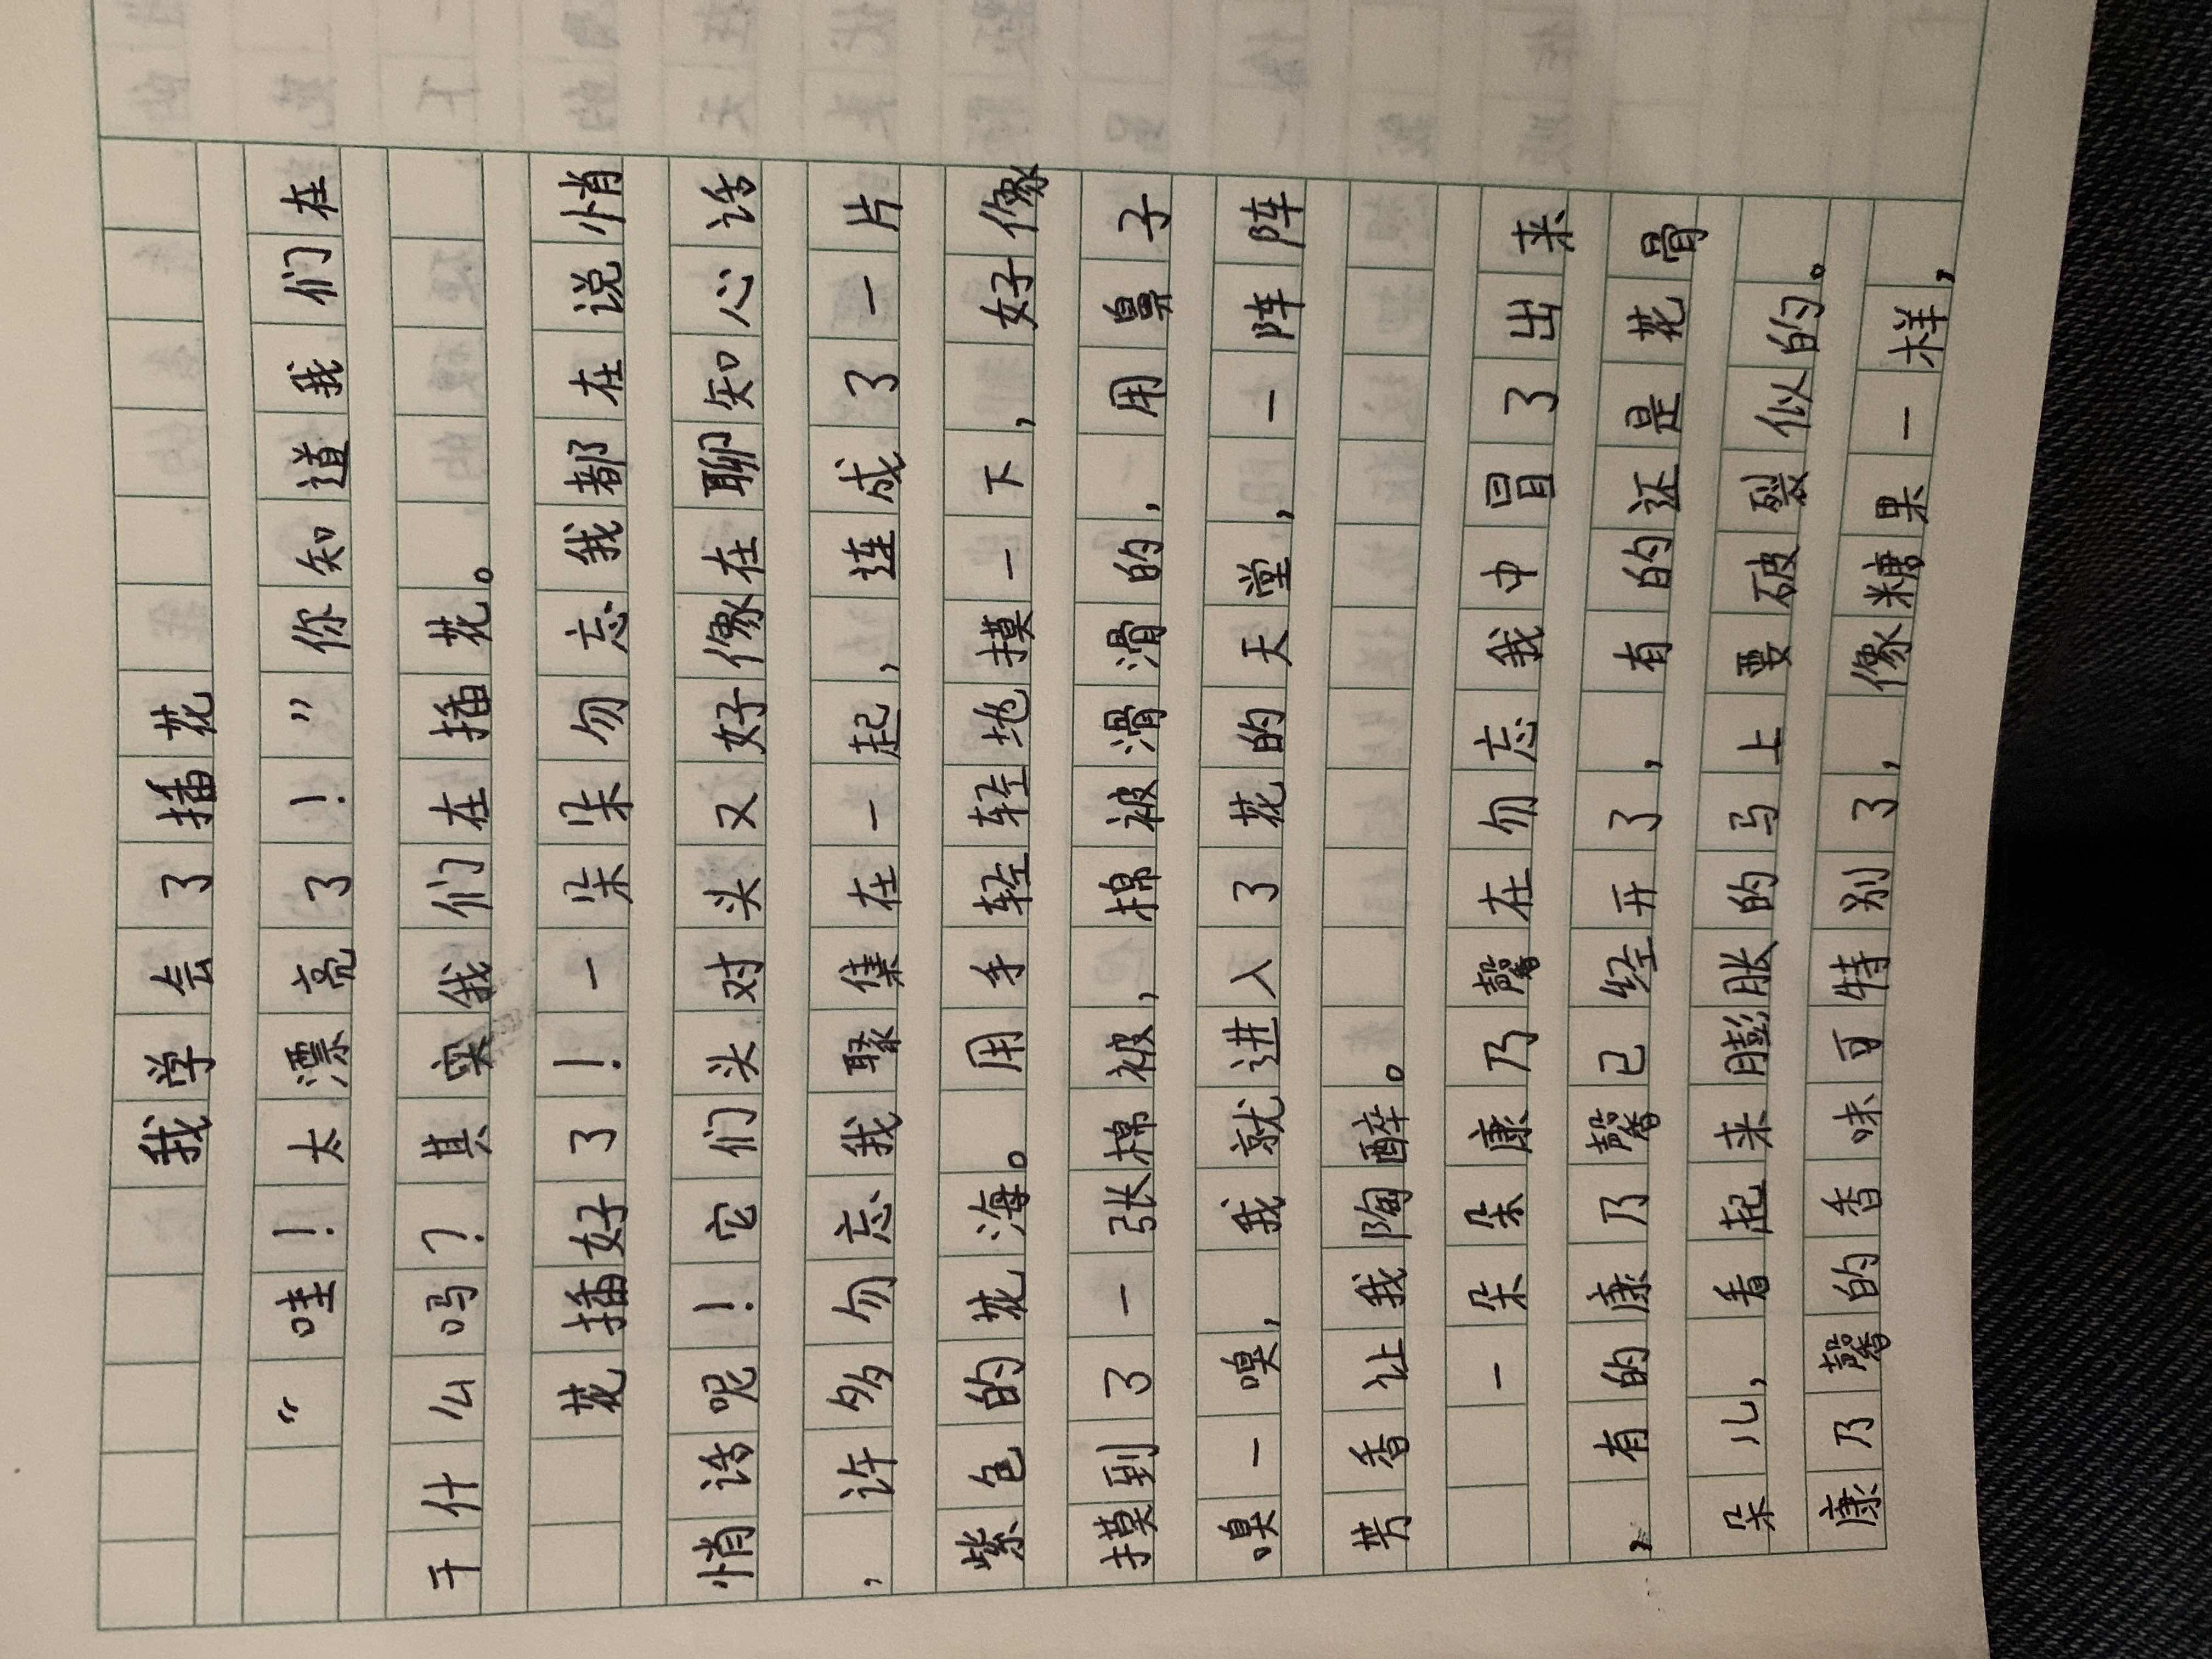 我学会了插花
“哇！太漂亮了！”你知道我们在
干什么吗？其实我们在插花。
花插好了！一朵朵勿忘我都在说悄
悄话呢！它们头对头又好像在聊知心话
，许多勿忘我聚集在一起，连成了一片
紫色的花海。用手轻轻地摸一下，好像
摸到了一张棉被，棉被滑滑的，用鼻子
嗅一嗅，我就进入了花的天堂，一阵阵
芳香让我陶醉。
一朵朵康乃馨在勿忘我中冒了出来
，有的康乃馨已经开了，有的还是花骨
朵儿，看起来膨胀的马上要破裂似的。
康乃馨的香味可特别了，像糖果一样，